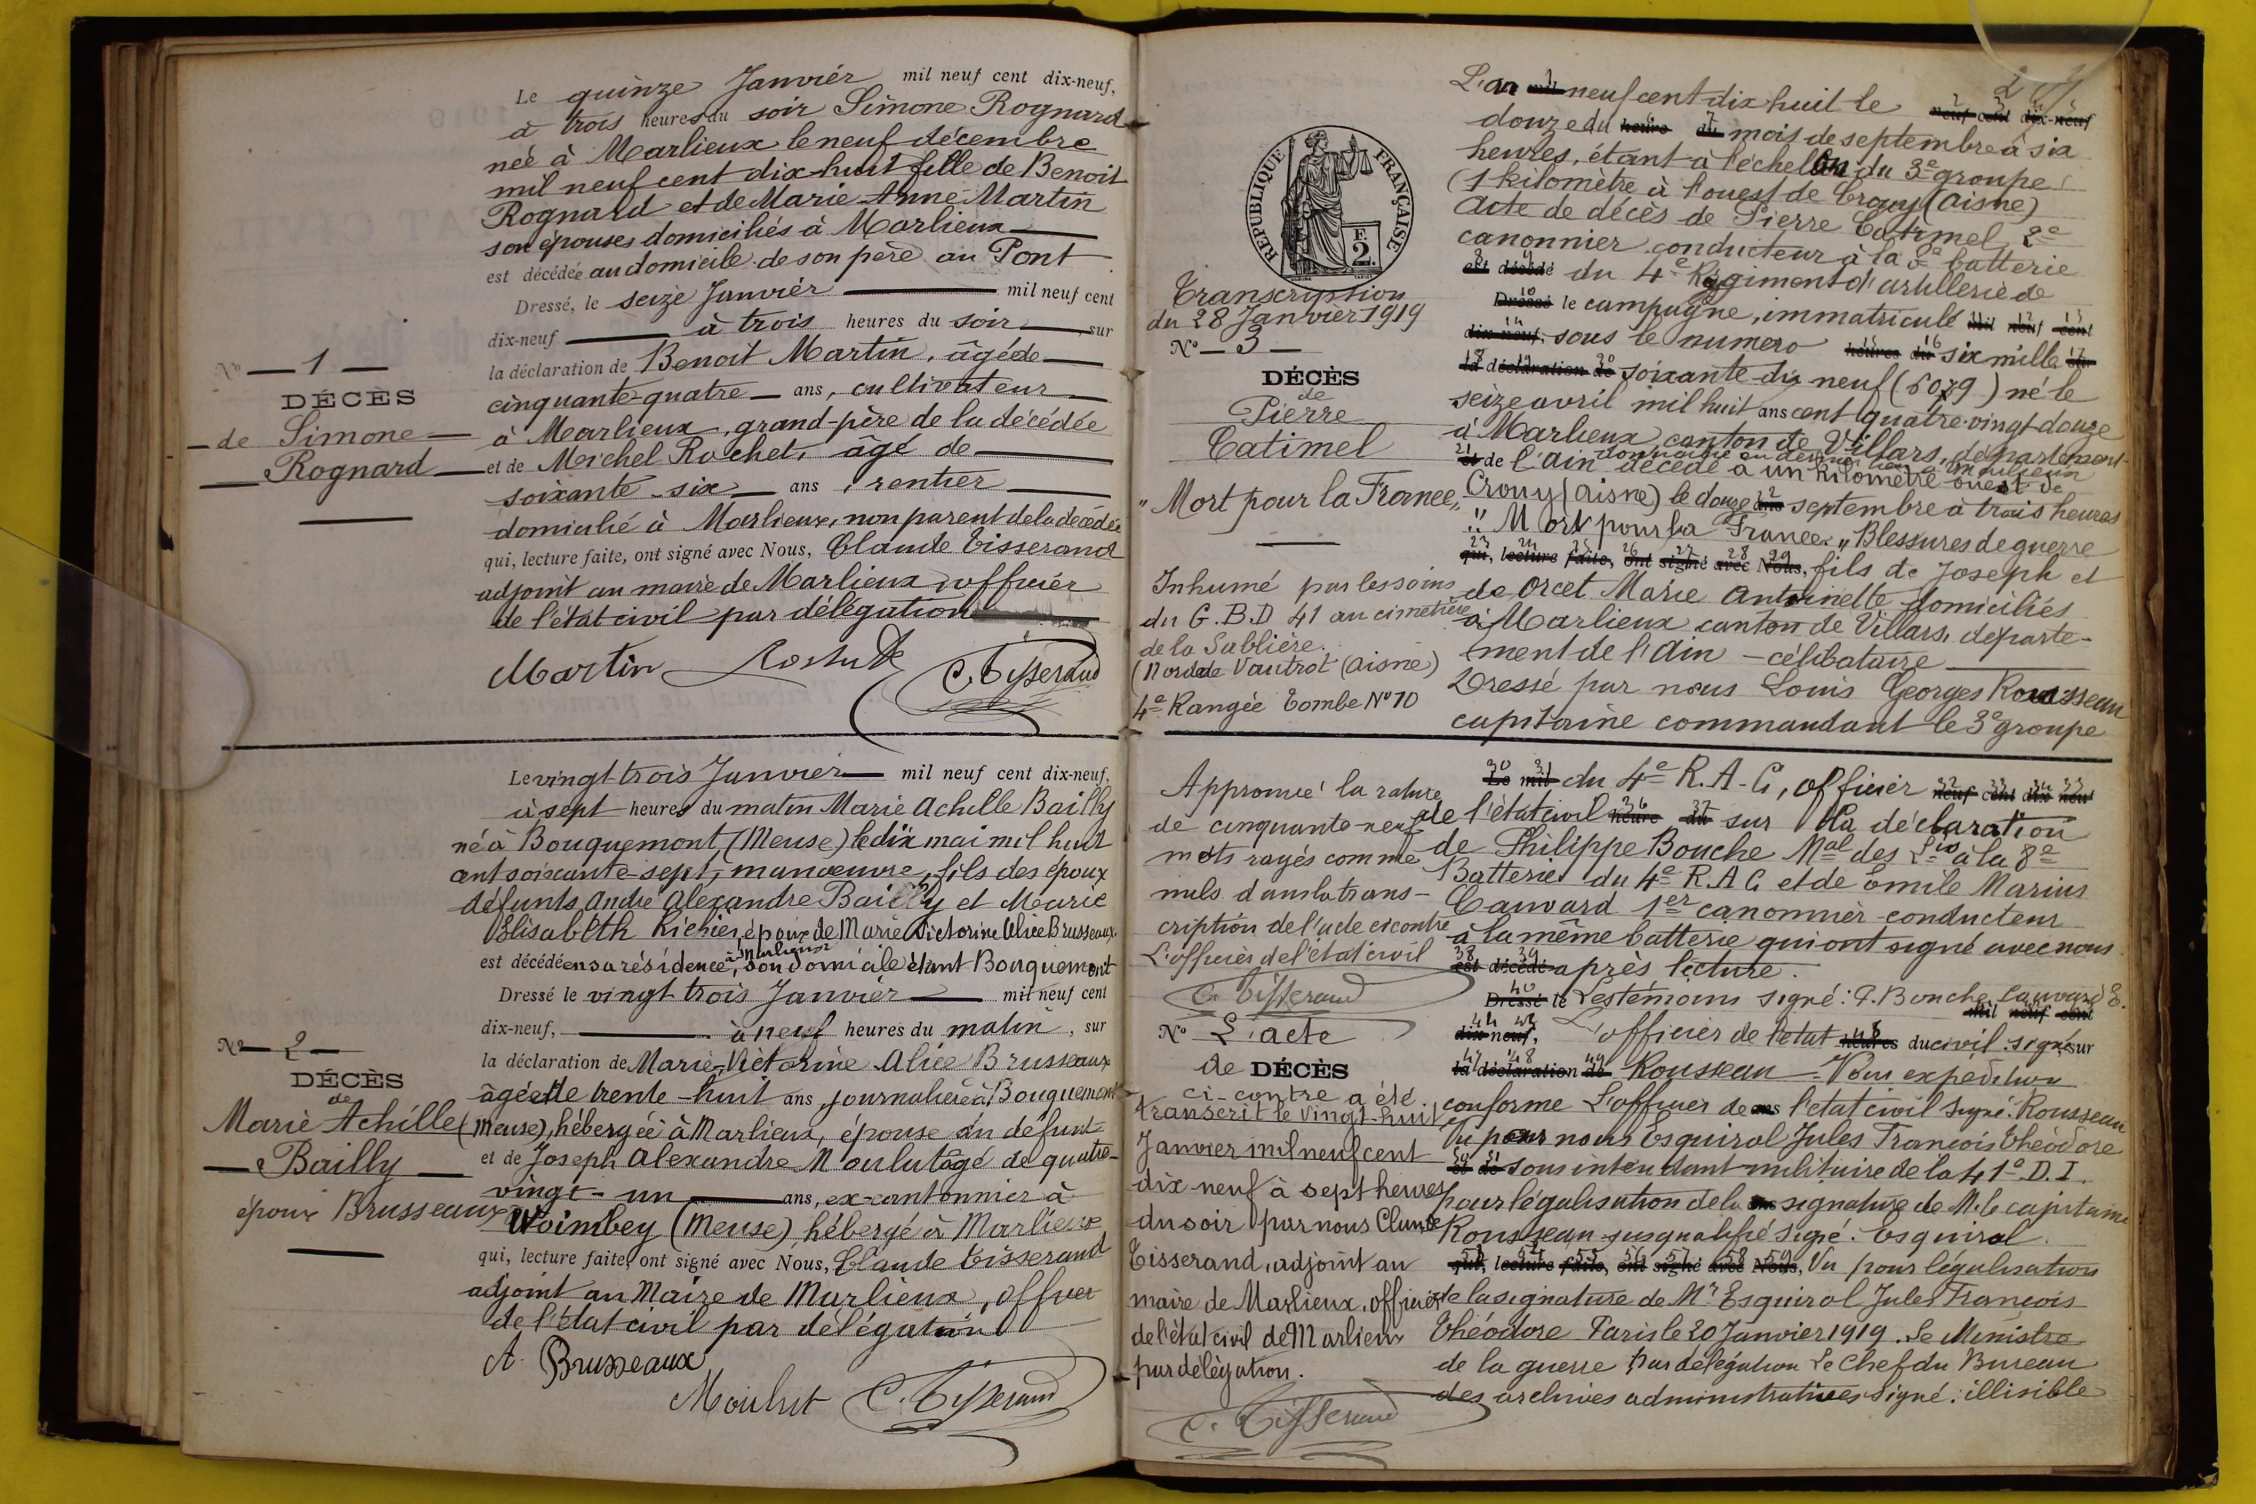 Le quinze Janvier mil neuf cent dix-neuf,
à trois heures du soir Simone Rognard
née à Marlieux le neuf décembre
mil neuf cent dix-huit fille de Benoit
Rognard et de Marie Anne Martin
son épouses domiciliés à Marlieux
est décédée au domicile de son père au Pont
Dressé, le seize Janvier mil neuf cent
dix-neuf à trois heures du soir, sur
la déclaration de Benoit Martin, âgé de
cinquante-quatre ans, cultivateur
à Marlieux, grand-père de la décédée
et de Michel Rochet, âgé de
soixante-six ans, rentier
domicilié à Marlieux, non parent de la décédée
qui, lecture faite, ont signé avec Nous, Claude Tisserand
adjoint au maire de Marlieux officier
de l'état civil par délégation
Martin C. Tisserand
No 1
DÉCÈS
de Simone
Rognard
Le vingt trois Janvier mil neuf cent dix-neuf,
à sept heures du matin Marie Achille Bailly
né à Bouquemont (Meuse) le dix mai mil huit
cent soixante-sept, manœuvre, fils des époux
défunts André Alexandre Bailly et Marie
Elisabeth Richier, époux de Marie Victorine Alice Brusseaux
est décédé en sa résidence, à Marlieux son domicile étant Bouquemont
Dressé le vingt trois Janvier mil neuf cent
dix-neuf, à neuf heures du matin, sur
la déclaration de Marie-Victorine Alice Brusseaux
âgée de trente-huit ans, journalière à Bouquemont
(Meuse), hébergée à Marlieux, épouse du défunt
et de Joseph Alexandre Moulut âgé de quatre-
vingt-un ans, ex-cantonnier à
Woimbey (Meuse) hébergé à Marlieux
qui, lecture faite, ont signé avec Nous, Claude Tisserand
adjoint au Maire de Marlieux, officier
de l'état civil par délégation
A. Brusseaux
Moulut C. Tisserand
No 2
DÉCÈS
de
Marie Achille
Bailly
époux Brusseaux
REPUBLIQUE FRANÇAISE
F.
2.
Transcription
du 28 Janvier 1919
No 3
DÉCÈS
de
Pierre
Catimel
"Mort pour la France"
Inhumé par les soins
du G.B.D 41 au cimetière
de la Sablière.
(Nord de Vautrot (Aisne)
4e Rangée Tombe No 10
L'an mil neuf cent dix huit le neuf cent dix-neuf
douze du heure du mois de septembre à six
heures, étant à l'échelon du 3e groupe
(1 kilomètre à l'ouest de Crouy (Aisne)
Acte de décès de Pierre Catimel 2e
canonnier conducteur à la 8e batterie
est décédé du 4e Régiment d'artillerie de
Dressé le campagne, immatriculé mil neuf cent
dix-neuf, sous le numero heures du six mille sur
la déclaration de soixante-dix neuf (6079) né le
seize avril mil huit ans cent quatre-vingt-douze
à Marlieux, canton de Villars, département
domicilié en dernier lieu à Marlieux
et de l'Ain décédé à un kilomètre ouest de
Crouy (Aisne) le douze ans septembre à trois heures
"Mort pour la France" Blessures de guerre
qui, lecture faite, ont signé avec Nous, fils de Joseph et
de Orcet Marie Antoinette domiciliés
à Marlieux canton de Villars, départe-
ment de l'Ain - célibataire
Dressé par nous Louis Georges Rousseau
capitaine commandant le 3e groupe
Le mil du 4e R.A.C, officier neuf cent dix neuf
de l'état civil heure du sur la déclaration
de Philippe Bouche Mal des Lis à la 8e
Batterie du 4e R.A.C et de Emile Marius
Cauvard 1er canonnier conducteur
à la même batterie qui ont signé avec nous
est décédé après lecture.
Dressé le Les témoins signé: P. Bouche Cauvard E.
mil neuf cent
dix neuf, L'officier de l'état heures du civil signé sur
la déclaration de Rousseau - Pour expédition
conforme L'officier de ans l'état civil signé: Rousseau
Vu pour nous Esquirol Jules François Théodore
et de sous intendant militaire de la 41e D.I.
pour légalisation de la ans signature de M. le capitaine
Rousseau susqualifié signé: Esquirol
qui, lecture faite, ont signé avec Nous, Vu pour légalisation
de la signature de Mr Esquirol Jules François
Théodore Paris le 20 Janvier 1919. Le Ministre
de la guerre Par délégation Le Chef du Bureau
des archives administratives signé: illisible
Approuvé la rature
de cinquante-neuf
mots rayés comme
nuls dans la trans-
cription de l'acte ci contre
L'officier de l'état civil
C. Tisserand
No L'acte
de DÉCÈS
ci-contre a été
transcrit le vingt-huit
Janvier mil neuf cent
dix neuf à sept heures
du soir par nous Claude
Tisserand, adjoint au
maire de Marlieux, officier
de l'état civil de Marlieux
par délégation.
C. Tisserand